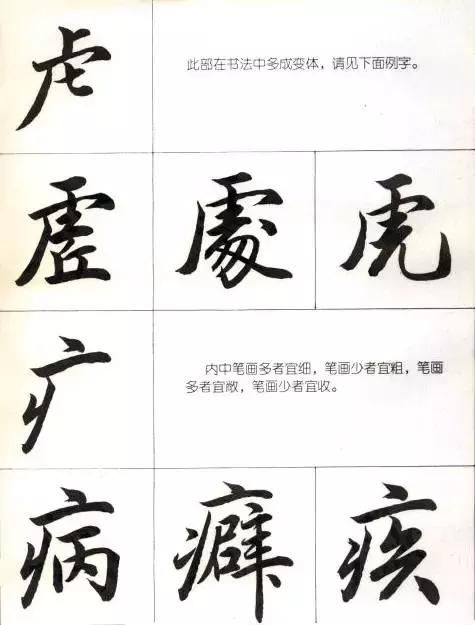 虍
此部在书法中多成变体，请见下面例字。
虛 處 虎
疒
内中笔画多者宜细，笔画少者宜粗，笔画
多者宜敞，笔画少者宜收。
病 癖 疾